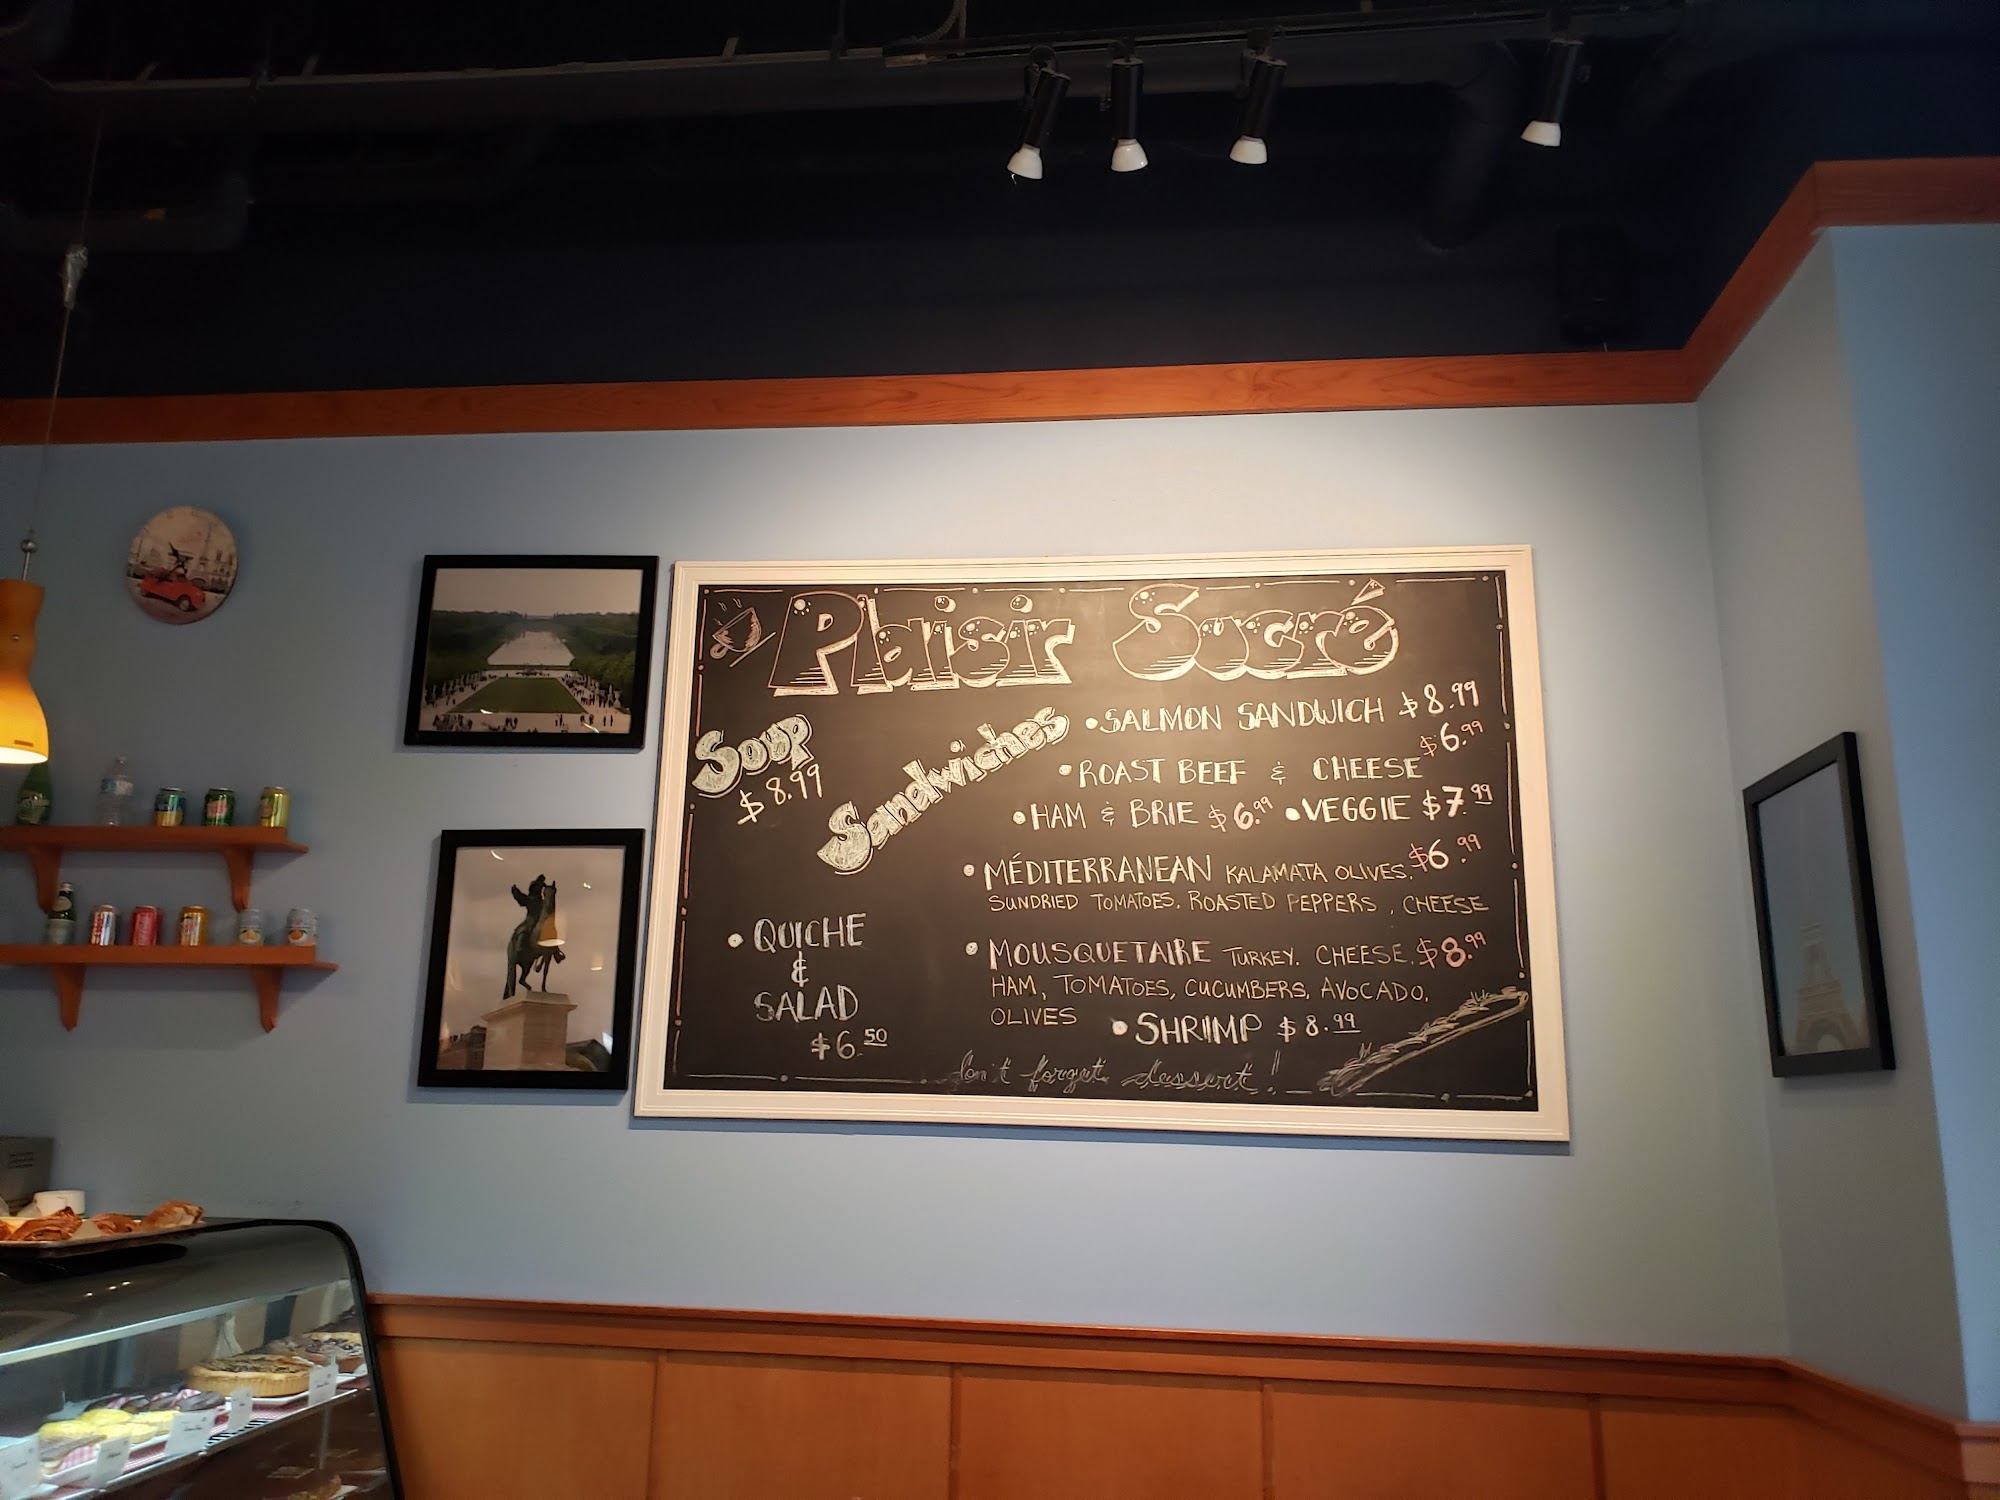 Plaisir Sucré
Soup
$8.99
Sandwiches
• SALMON SANDWICH $8.99
• ROAST BEEF & CHEESE $6.99
• HAM & BRIE $6.99 • VEGGIE $7.99
• MÉDITERRANEAN KALAMATA OLIVES, $6.99
SUNDRIED TOMATOES, ROASTED PEPPERS, CHEESE
• MOUSQUETAIRE TURKEY, CHEESE, $8.99
HAM, TOMATOES, CUCUMBERS, AVOCADO,
OLIVES
• SHRIMP $8.99
• QUICHE
&
SALAD
$6.50
Don't forget dessert!